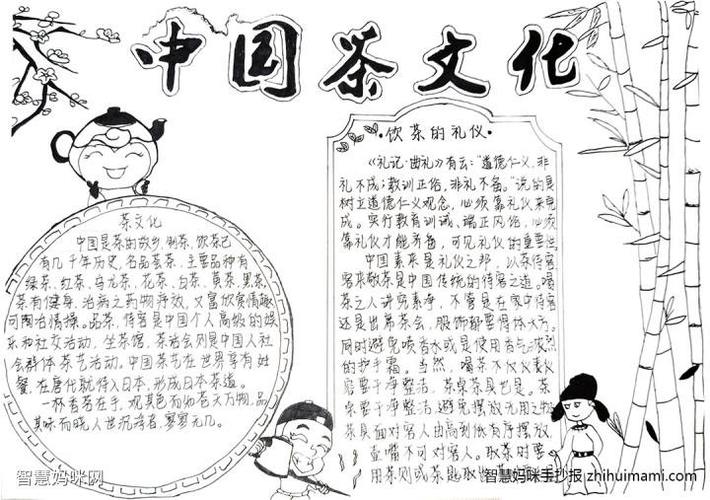 中国茶文化
茶文化
中国是茶的故乡,制茶、饮茶已
有几千年历史,名品荟萃,主要品种有
绿茶、红茶、乌龙茶、花茶、白茶、黄茶、黑茶。
茶有健身、治病之药物疗效,又富欣赏情趣,
可陶冶情操。品茶、待客是中国个人高级的娱
乐和社交活动,坐茶馆、茶话会则是中国人社
会群体茶艺活动。中国茶艺在世界享有
在唐代就传入日本,形成日本茶道。
一杯香茶在手,观其色
饮茶的礼仪
《礼记·曲礼》有云:“道德仁义,非
礼不成;教训正俗,非礼不备。”说的是
树立道德仁义观念,必须靠礼仪来完
成。实行教育训诫、端正风俗,必须
靠礼仪才能齐备,可见礼仪的重要性。
中国素来是礼仪之邦,以茶待客
客来敬茶是中国传统的待客之道。喝
茶之人讲究素净,不管是在家中待客
还是出席茶会,服饰都要得体大方。
同时避免喷香水或是使用香气浓烈
的护手霜。当然,喝茶不仅仪表仪
容要干净整洁,茶桌茶具也是。茶
桌要干净整洁,避免摆放无用之物
茶具面对客人由高到低有序摆放,
壶嘴不可对客人。取茶时要
用茶则或茶匙取
智慧妈咪网
智慧妈咪手抄报 zhihuimami.com